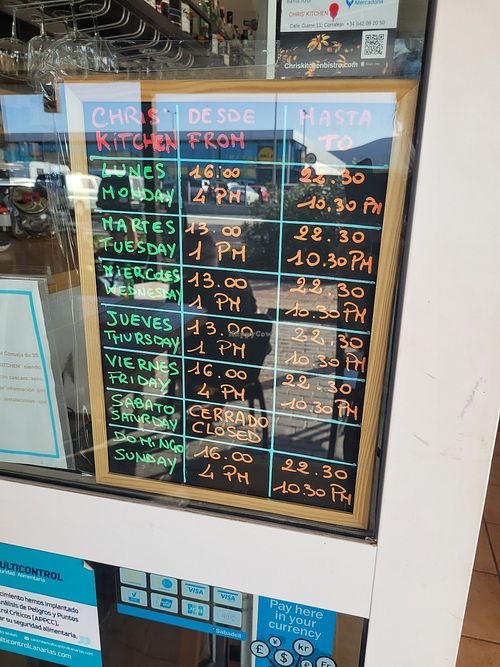 Mercadona
CHRIS' KITCHEN
Chriskitchenbistro.com
CHRIS' KITCHEN DESDE FROM HASTA TO
LUNES 16:00 22.30
MONDAY 4 PM 10.30 PM
MARTES 13.00 22.30
TUESDAY 1 PM 10.30PM
MIERCOLES 13.00 22.30
WEDNESDAY 1 PM 10.30PM
JUEVES 13.00 22.30
THURSDAY 1 PM 10.30 PM
VIERNES 16.00 22.30
FRIDAY 4 PM 10.30PM
SABATO CERRADO
SATURDAY CLOSED
DOMINGO 16.00 22.30
SUNDAY 4 PM 10.30 PM
ULTICONTROL
uridad Alimentaria
cimiento ha implantado
nálisis de Peligros y Puntos
rol Críticos (APPCC),
ar su seguridad alimentaria.
ulticontrolcanarias.com
VISA VISA
Sabadell
Pay here
in your
currency
£ kr
€ $